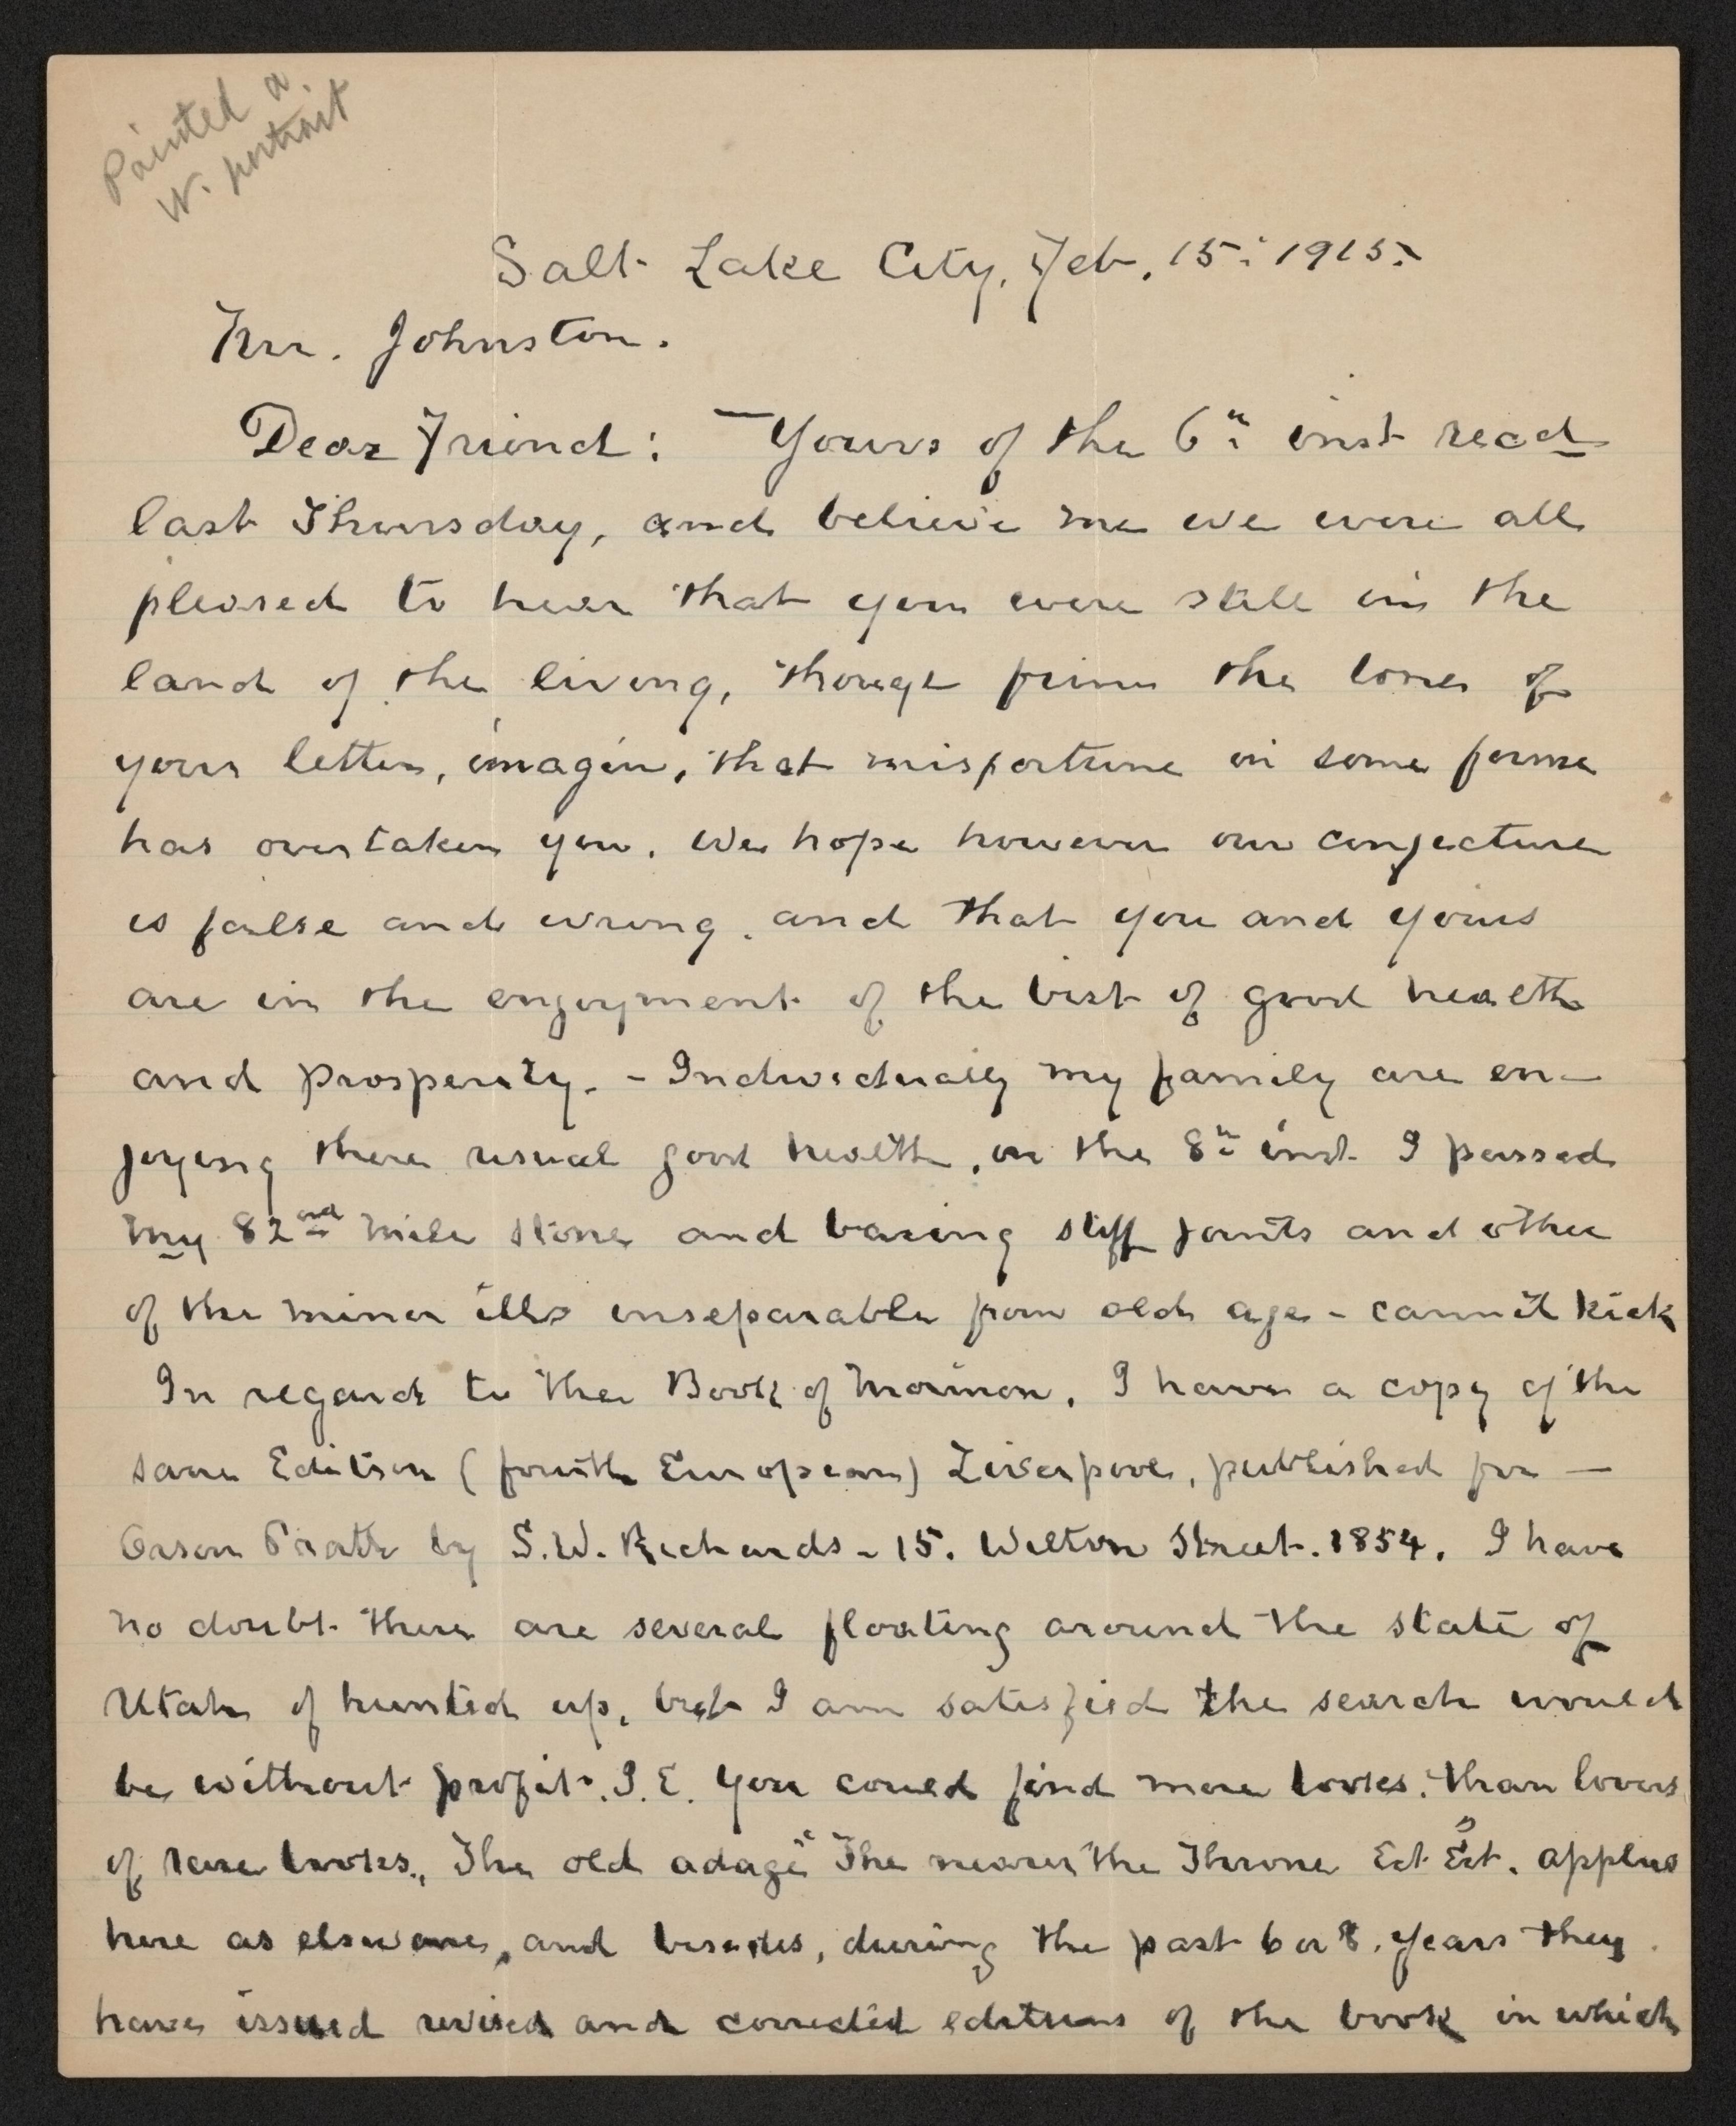 Painted a
W. portrait
Salt Lake City, Feb. 15: 1915.
Mr. Johnston.
Dear Friend: Yours of the 6" inst recd
last Thursday, and believe me we were all
pleased to hear that you were still in the
land of the living, though from the tone of
your letter, imagin, that misfortune in some forme
has overtaken you. We hope however our conjecture
is false and wrong. and that you and yours
are in the enjoyment of the best of good health
and prosperity. - Individually my family are en-
joying there usual good health, on the 8" inst I passed
my 82nd mile stone and baring stiff joints and other
of the minor ills inseparable from old age - cannot kick
In regard to the Book of Mormon. I have a copy of the
same Edition (fourth European) Liverpool, published for —
Orson Pratt by S.W. Richards - 15. Wilton Street. 1854. I have
no doubt there are several floating around the state of
Utah if hunted up, but I am satisfied the search would
be without profit. I.E. you could find more books. than lovers
of rare books., The old adage "The nearer the Throne Ect Ect. applies
here as elsewere, and besides, during the past 6 or 8. years they
have issued revised and corrected editions of the book in which